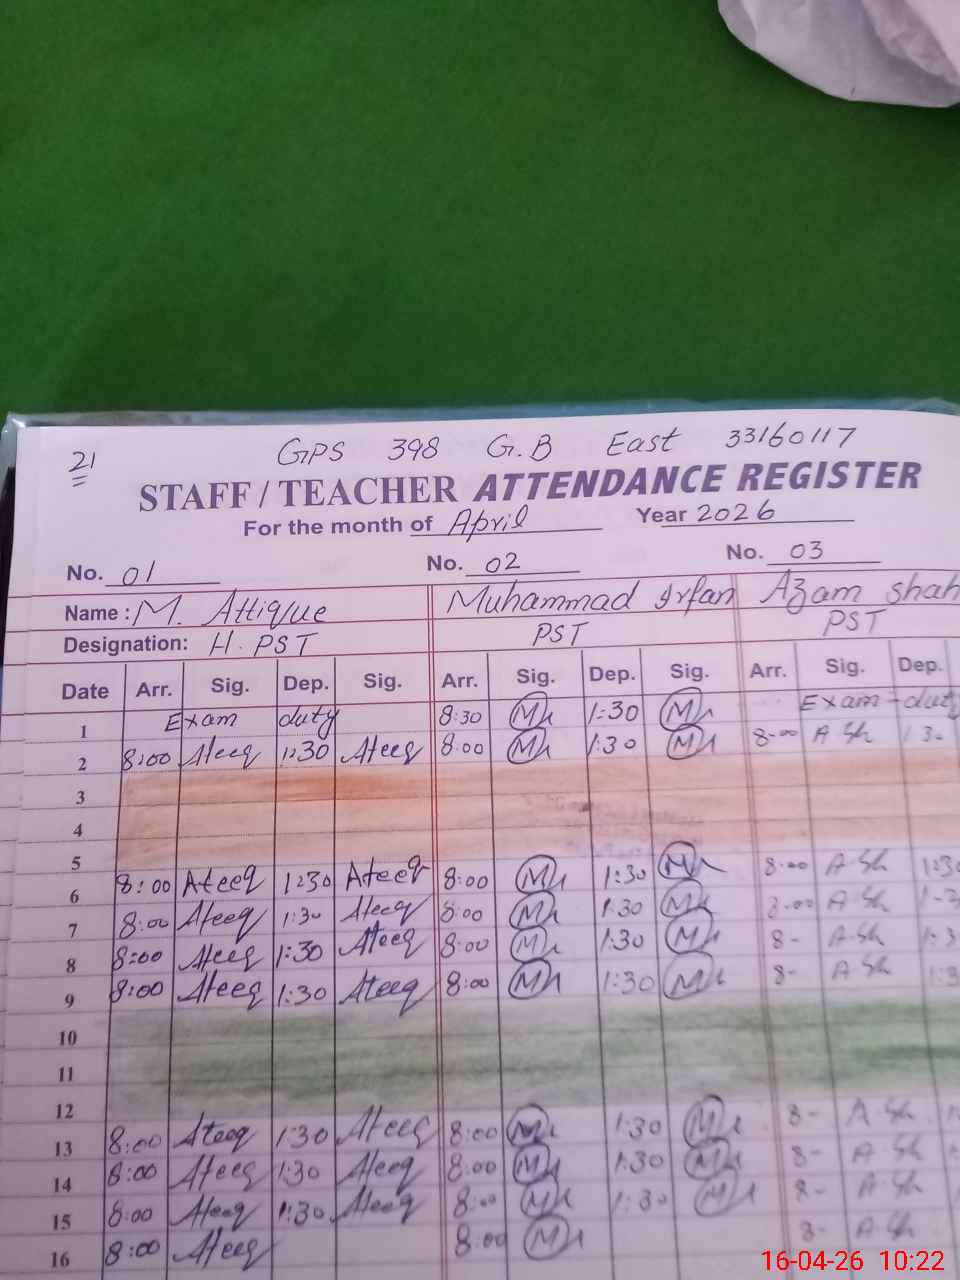 21
GPS 398 G.B East 33160117
STAFF / TEACHER ATTENDANCE REGISTER
For the month of April Year 2026
No. 01 No. 02 No. 03
Name : M. Attique Muhammad Irfan Azam Shah
Designation: H. PST PST PST
Date Arr. Sig. Dep. Sig. Arr. Sig. Dep. Sig. Arr. Sig. Dep.
1 Exam duty 8:30 1:30 Exam - duty
2 8:00 Ateeq 1:30 Ateeq 8:00 1:30 8-00 A Sh 1 30
3
4
5
6 8:00 Ateeq 1:30 Ateeq 8:00 1:30 8:00 A Sh 1:30
7 8:00 Ateeq 1:30 Ateeq 8:00 1:30 8-00 A Sh
8 8:00 Ateeq 1:30 Ateeq 8:00 1:30 8- A Sh
9 8:00 Ateeq 1:30 Ateeq 8:00 1:30 8- A Sh
10
11
12
13 8:00 Ateeq 1:30 Ateeq 8:00 1:30 8- A Sh
14 8:00 Ateeq 1:30 Ateeq 8:00 1:30 8- A Sh
15 8:00 Ateeq 1:30 Ateeq 8:00 1:30 8- A Sh
16 8:00 Ateeq 8:00 8- A Sh
16-04-26 10:22